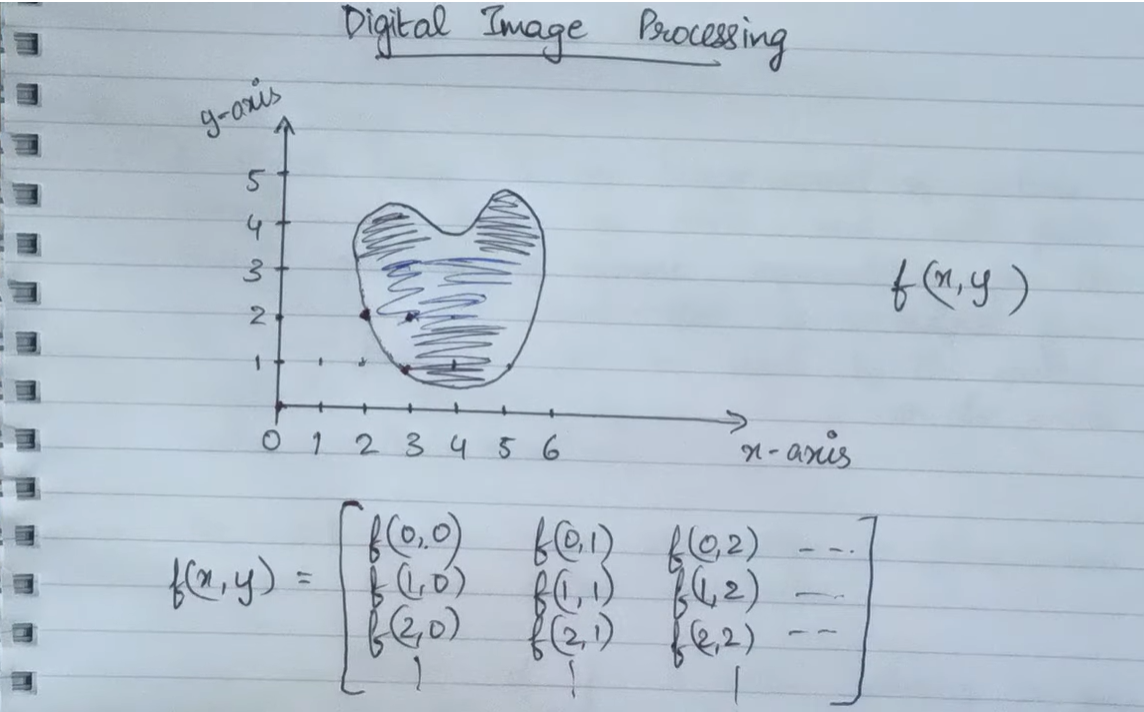 Digital Image Processing
y-axis
5
4
3
2
1
0 1 2 3 4 5 6
x-axis
f(x,y)
f(x,y) =
f(0,0) f(0,1) f(0,2) ---
f(1,0) f(1,1) f(1,2) ---
f(2,0) f(2,1) f(2,2) --